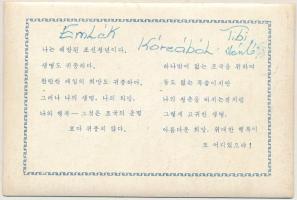 Emlék
Koreából Tibi
나는 해방된 조선청년이다.
생명도 귀중하다.
찬란한 래일의 희망도 귀중하다.
그러나 나의 생명, 나의 희망,
나의 행복—그것은 조국의 운명
보다 귀중치 않다.
하나밖에 없는 조국을 위하여
둘도 없는 목숨이지만
나의 청춘을 바치는것처럼
그렇게 고귀한 생명,
아름다운 희망, 위대한 행복이
또 어디있으랴!